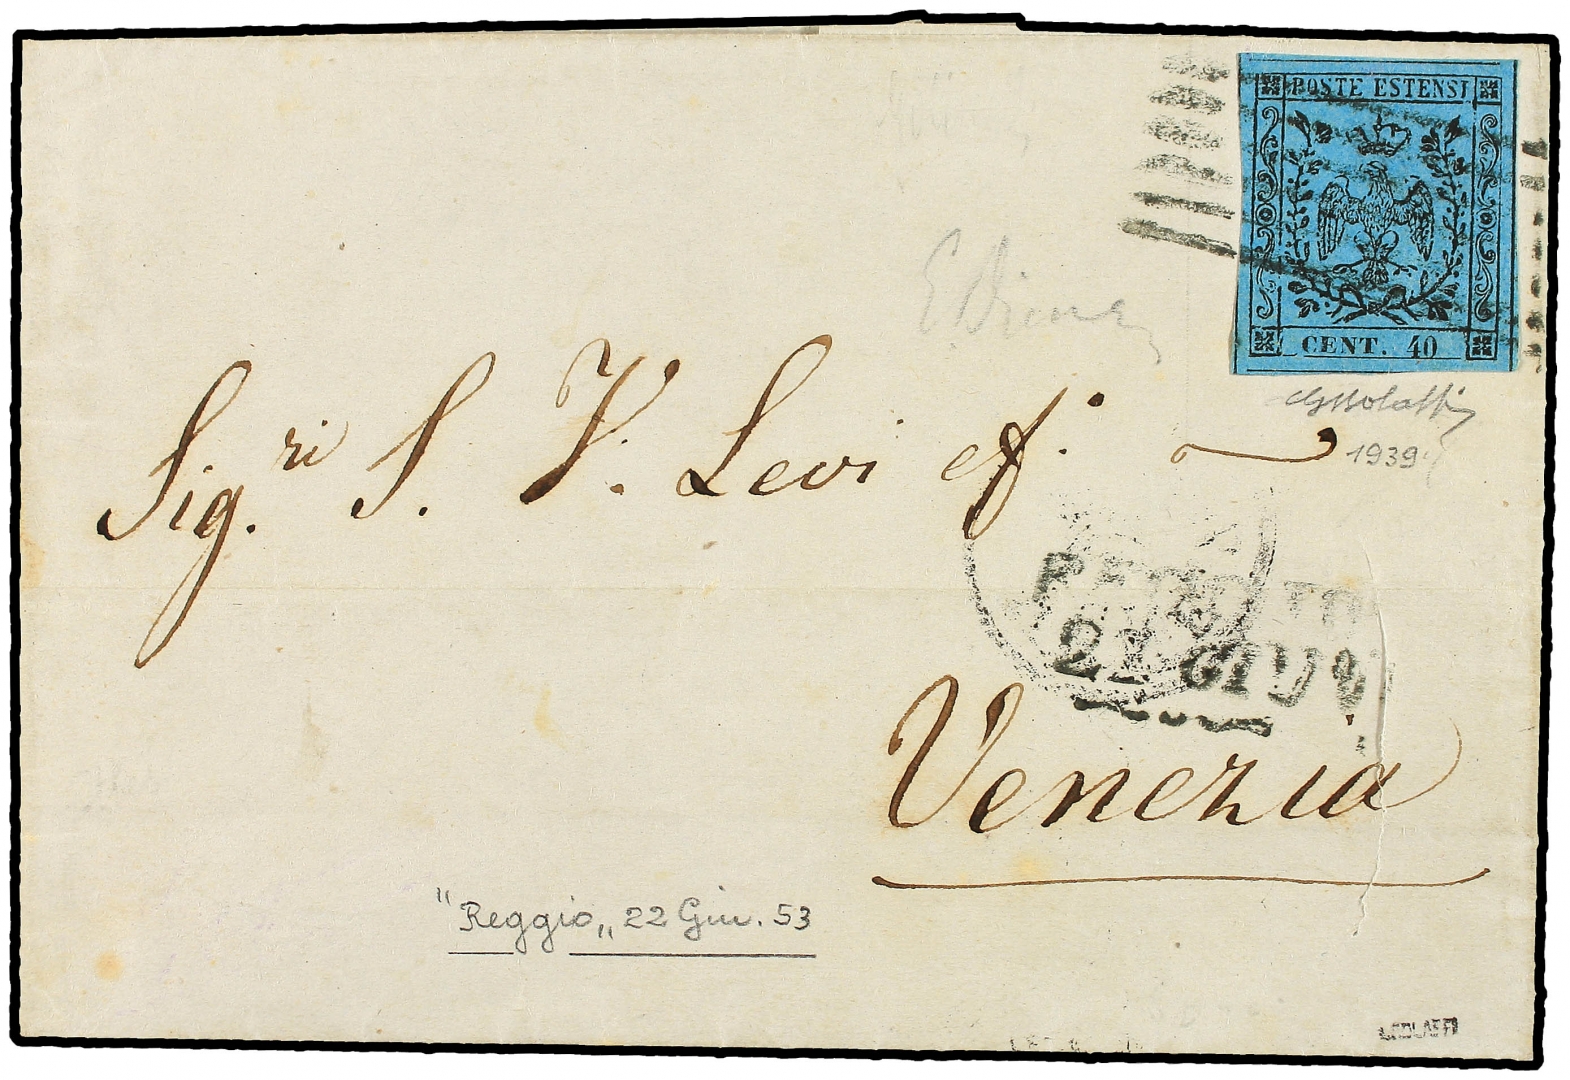 POSTE ESTENSI
CENT. 40
E. Diena
1939
Sig.ri S. V. Levi et f.
22 GIU
Venezia
"Reggio„ 22 Giu. 53